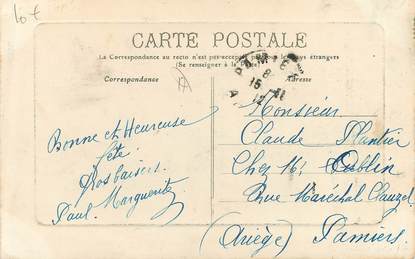 10 €
CARTE POSTALE
La Correspondance au recto n'est pas acceptée par tous les pays étrangers
(Se renseigner à la Poste)
Correspondance
Adresse
Bonne et Heureuse
fête
Gros baisers
Paul. Marguerite
Monsieur
Claude Plantier
Chez Mr
Rue Maréchal Clauzel
(Ariège) Pamiers